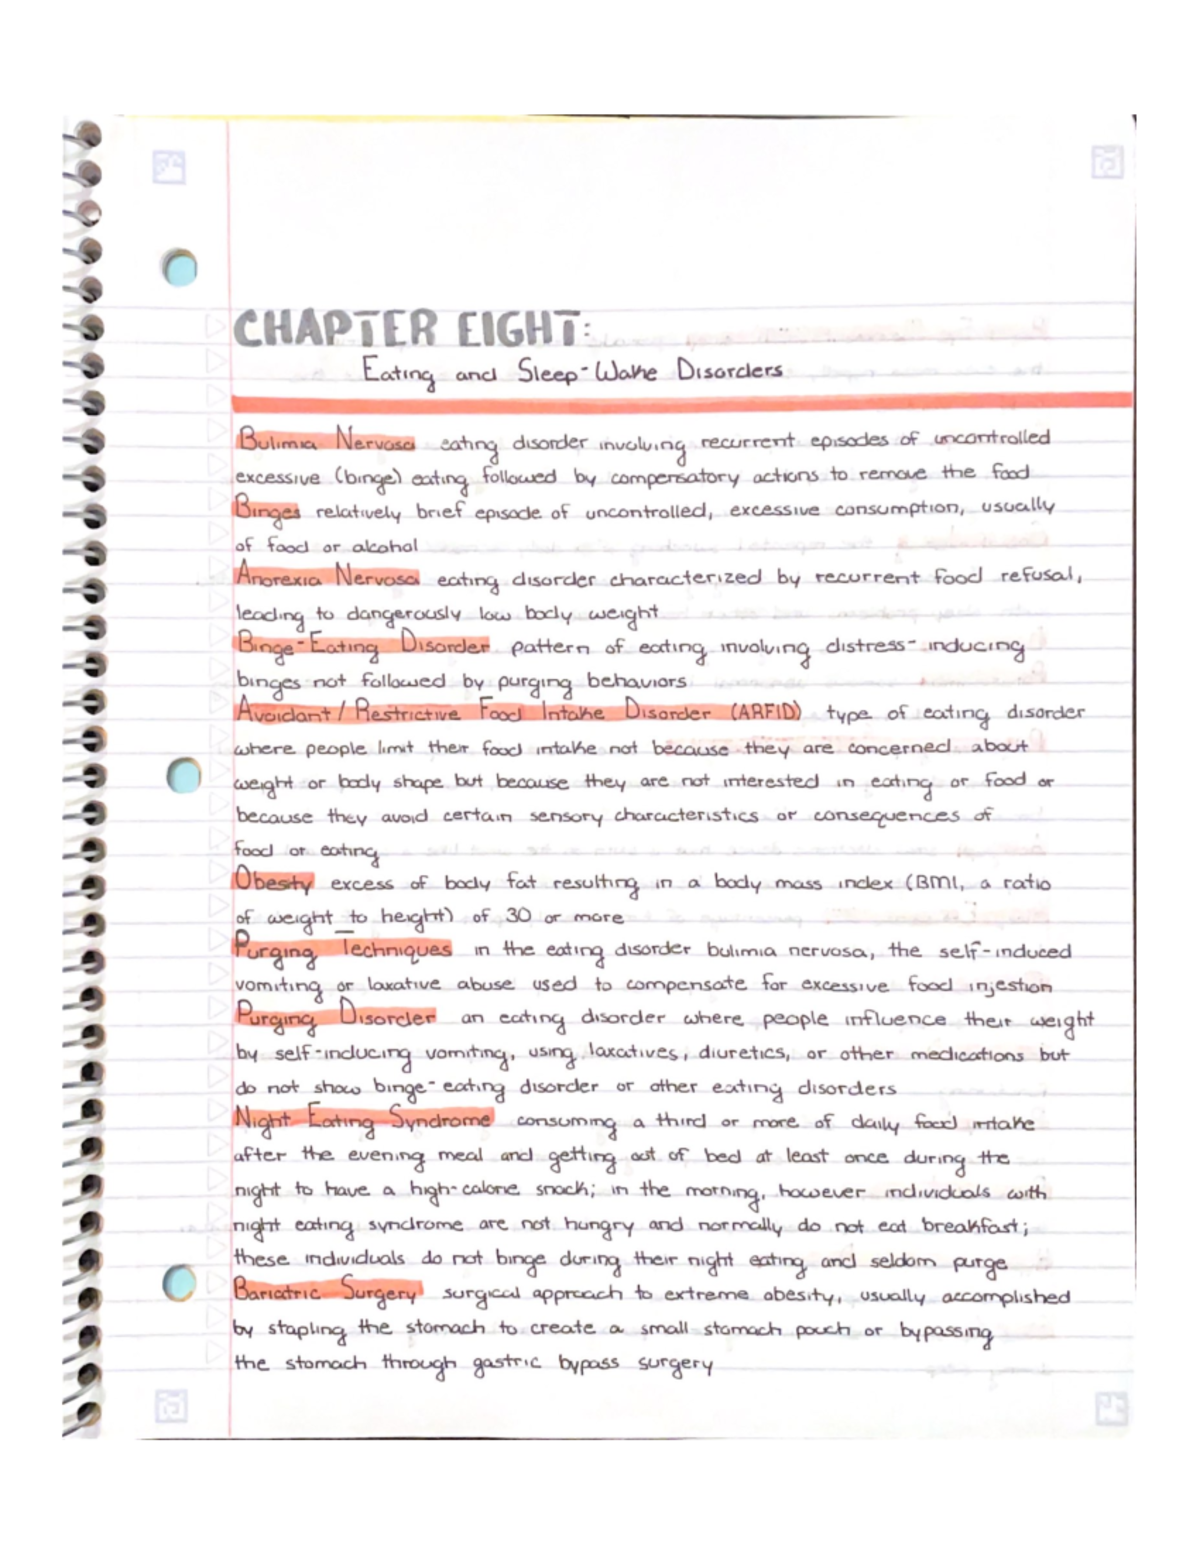 CHAPTER EIGHT:
Eating and Sleep-Wake Disorders
Bulimia Nervosa eating disorder involving recurrent episodes of uncontrolled
excessive (binge) eating followed by compensatory actions to remove the food
Binges relatively brief episode of uncontrolled, excessive consumption, usually
of food or alcohol
Anorexia Nervosa eating disorder characterized by recurrent food refusal,
leading to dangerously low body weight
Binge-Eating Disorder pattern of eating involving distress-inducing
binges not followed by purging behaviors
Avoidant/Restrictive Food Intake Disorder (ARFID) type of eating disorder
where people limit their food intake not because they are concerned about
weight or body shape but because they are not interested in eating or food or
because they avoid certain sensory characteristics or consequences of
food or eating
Obesity excess of body fat resulting in a body mass index (BMI, a ratio
of weight to height) of 30 or more
Purging Techniques in the eating disorder bulimia nervosa, the self-induced
vomiting or laxative abuse used to compensate for excessive food injestion
Purging Disorder an eating disorder where people influence their weight
by self-inducing vomiting, using laxatives, diuretics, or other medications but
do not show binge-eating disorder or other eating disorders
Night Eating Syndrome consuming a third or more of daily food intake
after the evening meal and getting out of bed at least once during the
night to have a high-calorie snack; in the morning, however individuals with
night eating syndrome are not hungry and normally do not eat breakfast;
these individuals do not binge during their night eating and seldom purge
Bariatric Surgery surgical approach to extreme obesity, usually accomplished
by stapling the stomach to create a small stomach pouch or bypassing
the stomach through gastric bypass surgery